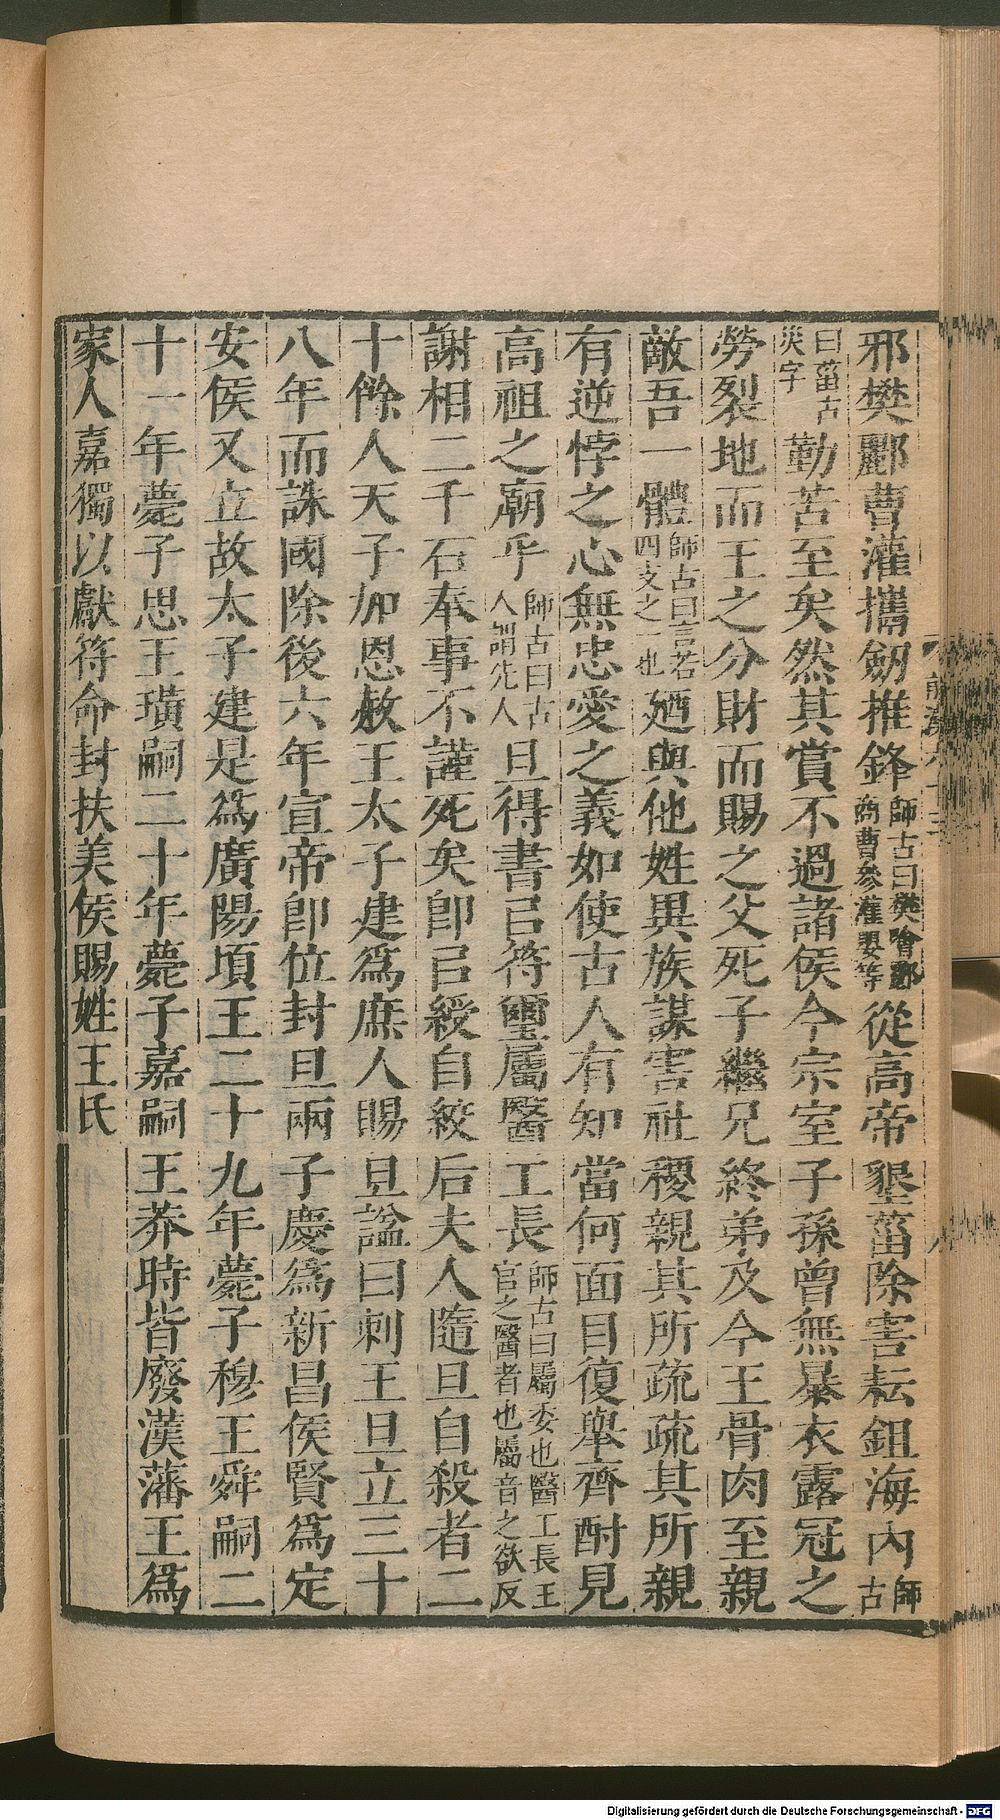 邪樊酈曹灌攜劒推鋒師古曰樊噲酈商曹參灌嬰等從高帝墾菑除害耘鉏海內師古
曰菑古災字勤苦至矣然其賞不過諸侯今宗室子孫曾無暴衣露冠之
勞裂地而王之分財而賜之父死子繼兄終弟及今王骨肉至親
敵吾一體師古曰言若四支之一也廼與他姓異族謀害社稷親其所疏疏其所親
有逆悖之心無忠愛之義如使古人有知當何面目復舉齊酎見
高祖之廟乎師古曰古人謂先人旦得書㠯符璽屬醫工長師古曰屬委也醫工長王官之醫者也屬音之欲反
謝相二千石奉事不謹死矣卽㠯綬自絞后夫人隨旦自殺者二
十餘人天子加恩赦王太子建爲庶人賜旦諡曰剌王旦立三十
八年而誅國除後六年宣帝卽位封旦兩子慶爲新昌侯賢爲定
安侯又立故太子建是爲廣陽頃王二十九年薨子穆王舜嗣二
十一年薨子思王璜嗣二十年薨子嘉嗣王莽時皆廢漢藩王爲
家人嘉獨以獻符命封扶美侯賜姓王氏
Digitalisierung gefördert durch die Deutsche Forschungsgemeinschaft - DFG